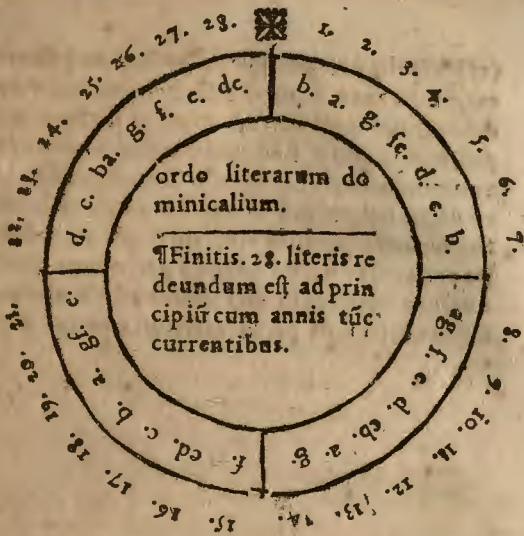 1. 2. 3. 4. 5. 6. 7. 8. 9. 10. 11. 12. 13. 14. 15. 16. 17. 18. 19. 20. 21. 22. 23. 24. 25. 26. 27. 28.
b. a. g. fe. d. c. b.
ag. f. e. d. cb. a. g.
f. ed. c. b. a. gf. e.
d. c. ba. g. f. e. dc.
ordo literarum do
minicalium.
¶Finitis. 28. literis re
deundum est ad prin
cipiũ cum annis tũc
currentibus.